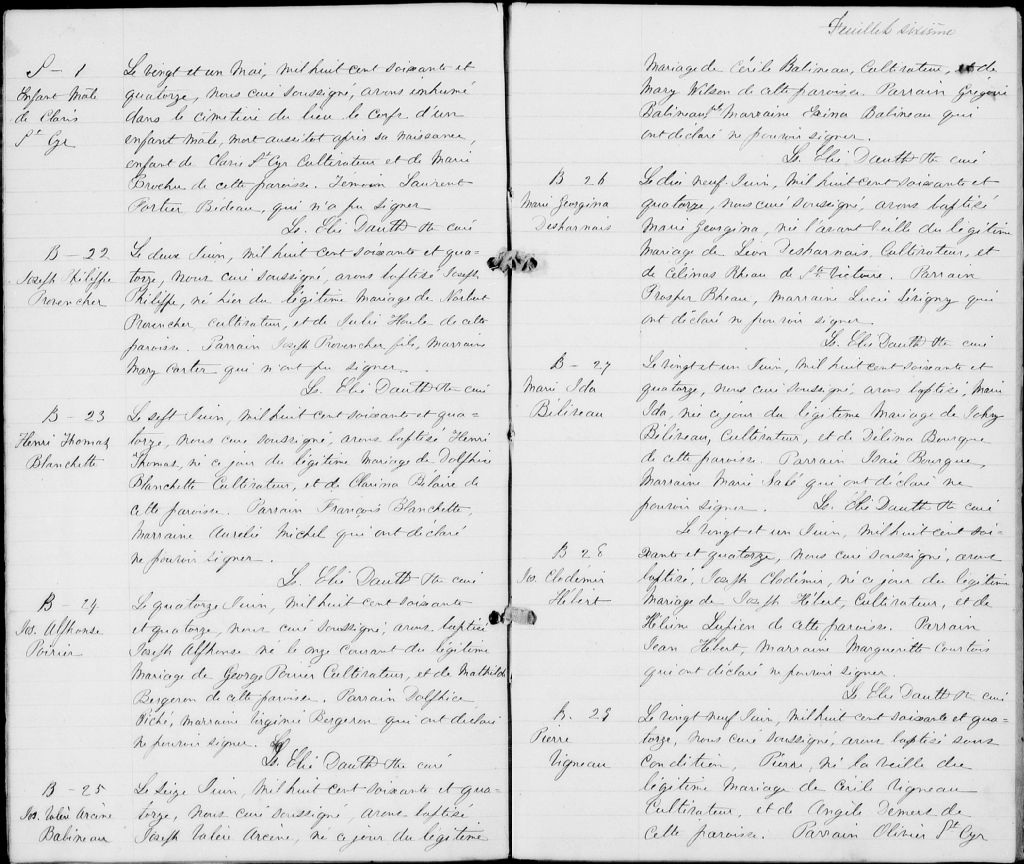 S - 1
Enfant Mâle
de Claris
St Cyr
Le vingt et un Mai, mil huit cent soixante et
quatorze, nous curé soussigné, avons inhumé
dans le cimetière du lieu le corps d'un
enfant mâle, mort aussitot après sa naissance,
enfant de Claris St Cyr Cultivateur et de Marie
Brochu de cette paroisse. Témoin Laurent
Fortier Bedeau, qui n'a pu signer
Ls. Elie Dauth Ptre curé
B - 22
Joseph Philippe
Provencher
Le deux Juin, mil huit cent soixante et qua=
torze, nous curé soussigné, avons baptisé Joseph
Philippe, né hier du légitime mariage de Norbert
Provencher, cultivateur, et de Julie Houle de cette
paroisse. Parrain Joseph Provencher fils, Marraine
Mary Carter qui n'ont pu signer.
Ls. Elie Dauth Ptre curé
B - 23
Henri Thomas
Blanchette
Le sept Juin, mil huit cent soixante et qua=
torze, nous curé soussigné, avons baptisé Henri
Thomas, né ce jour du légitime mariage de Dolphice
Blanchette Cultivateur, et de Clarina Bélaire de
cette paroisse. Parrain François Blanchette,
Marraine Aurelie Michel qui ont déclaré
ne pouvoir signer.
Ls. Elie Dauth Ptre curé
B - 24
Jos. Alphonse
Poirier
Le quatorze Juin, mil huit cent soixante
et quatorze, nous curé soussigné, avons baptisé
Joseph Alphonse né le onze courant du légitime
Mariage de George Poirier Cultivateur, et de Mathilde
Bergeron de cette paroisse. Parrain Dolphice
Piché, marraine Virginie Bergeron qui ont déclaré
ne pouvoir signer.
Ls. Elie Dauth Ptre curé
B - 25
Jos. Valère Arcène
Babineau
Le Seize Juin, mil huit cent soixante et qua=
torze, nous curé soussigné, avons baptisé
Joseph Valère Arcène, né ce jour du légitime
Feuillet sixième
Mariage de Cérile Babineau, Cultivateur, et de
Mary Wilson de cette paroisse. Parrain Grégoire
Babineau, Marraine Exina Babineau qui
ont déclaré ne pouvoir signer.
Ls. Elie Dauth Ptre curé
B 26
Marie Georgina
Desharnais
Le dix neuf Juin, mil huit cent soixante et
quatorze, nous curé soussigné, avons baptisé
Marie Georgina, née l'avant veille du légitime
mariage de Léon Desharnais, Cultivateur, et
de Celimas Rheau de Ste Victoire. Parrain
Prosper Rheau, marraine Lucie Sévigny qui
ont déclaré ne pouvoir signer
Ls. Elie Dauth Ptre curé
B - 27
Marie Ida
Béliveau
Le vingt et un Juin, mil huit cent soixante et
quatorze, nous curé soussigné, avons baptisé, Marie
Ida, née ce jour du légitime Mariage de
Béliveau, Cultivateur, et de Délima Bourque
de cette paroisse. Parrain Isaïe Bourque,
Marraine Marie qui ont déclaré ne
pouvoir signer. Ls. Elie Dauth Ptre curé
B 28
Jos. Clodémir
Hébert
Le vingt et un Juin, mil huit cent soi=
xante et quatorze, nous curé soussigné, avons
baptisé, Joseph Clodémir, né ce jour du légitime
Mariage de Joseph Hébert, Cultivateur, et de
Hélène Lupien de cette paroisse. Parrain
Jean Hébert, Marraine Marguerite Courtois
qui ont déclaré ne pouvoir signer.
Ls Elie Dauth Ptre curé
B. 29
Pierre
Vigneau
Le vingt neuf Juin, mil huit cent soixante et qua=
torze, nous curé soussigné, avons baptisé sous
condition, Pierre, né la veille du
légitime mariage de Cérile Vigneau
Cultivateur, et de Angèle Demers de
cette paroisse. Parrain Olivier St Cyr